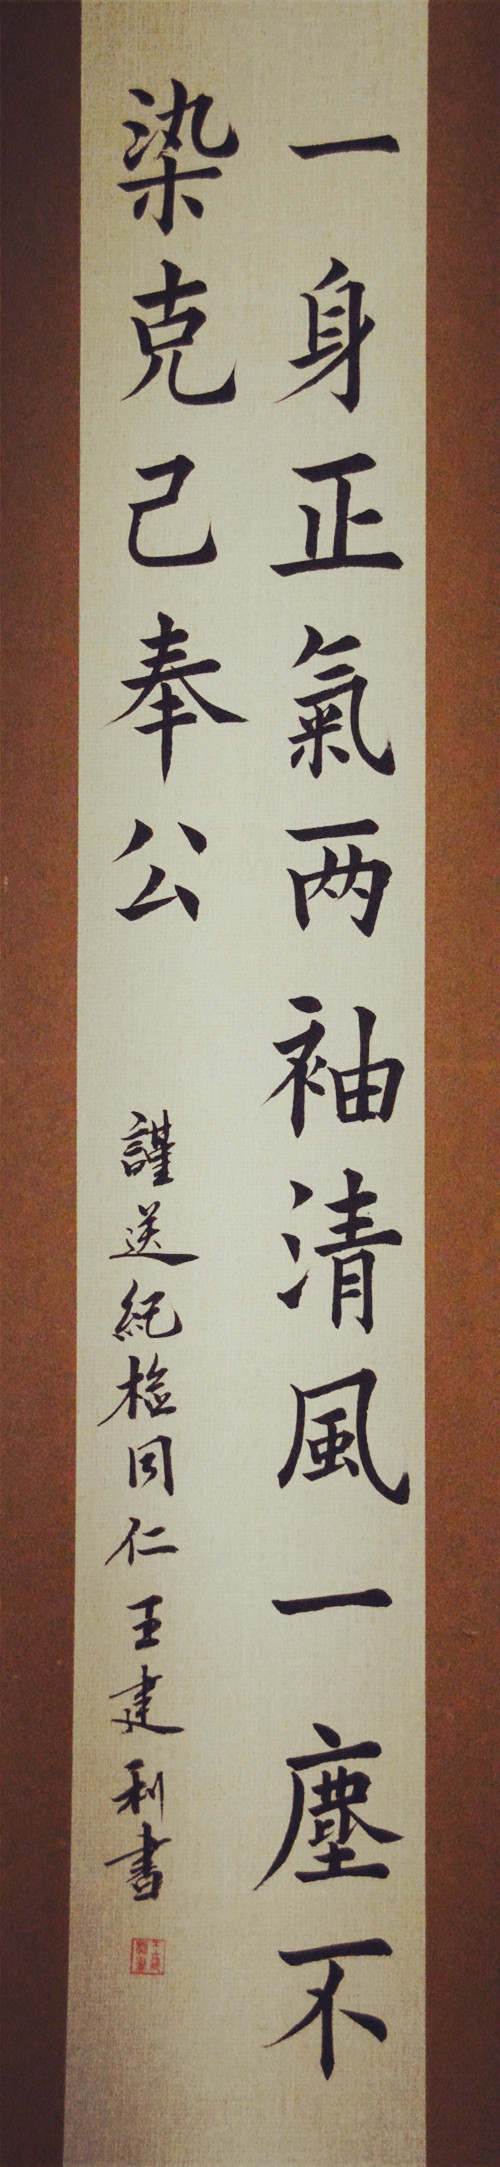 一身正氣两袖清風一塵不
染克己奉公
謹送紀檢同仁王建利書